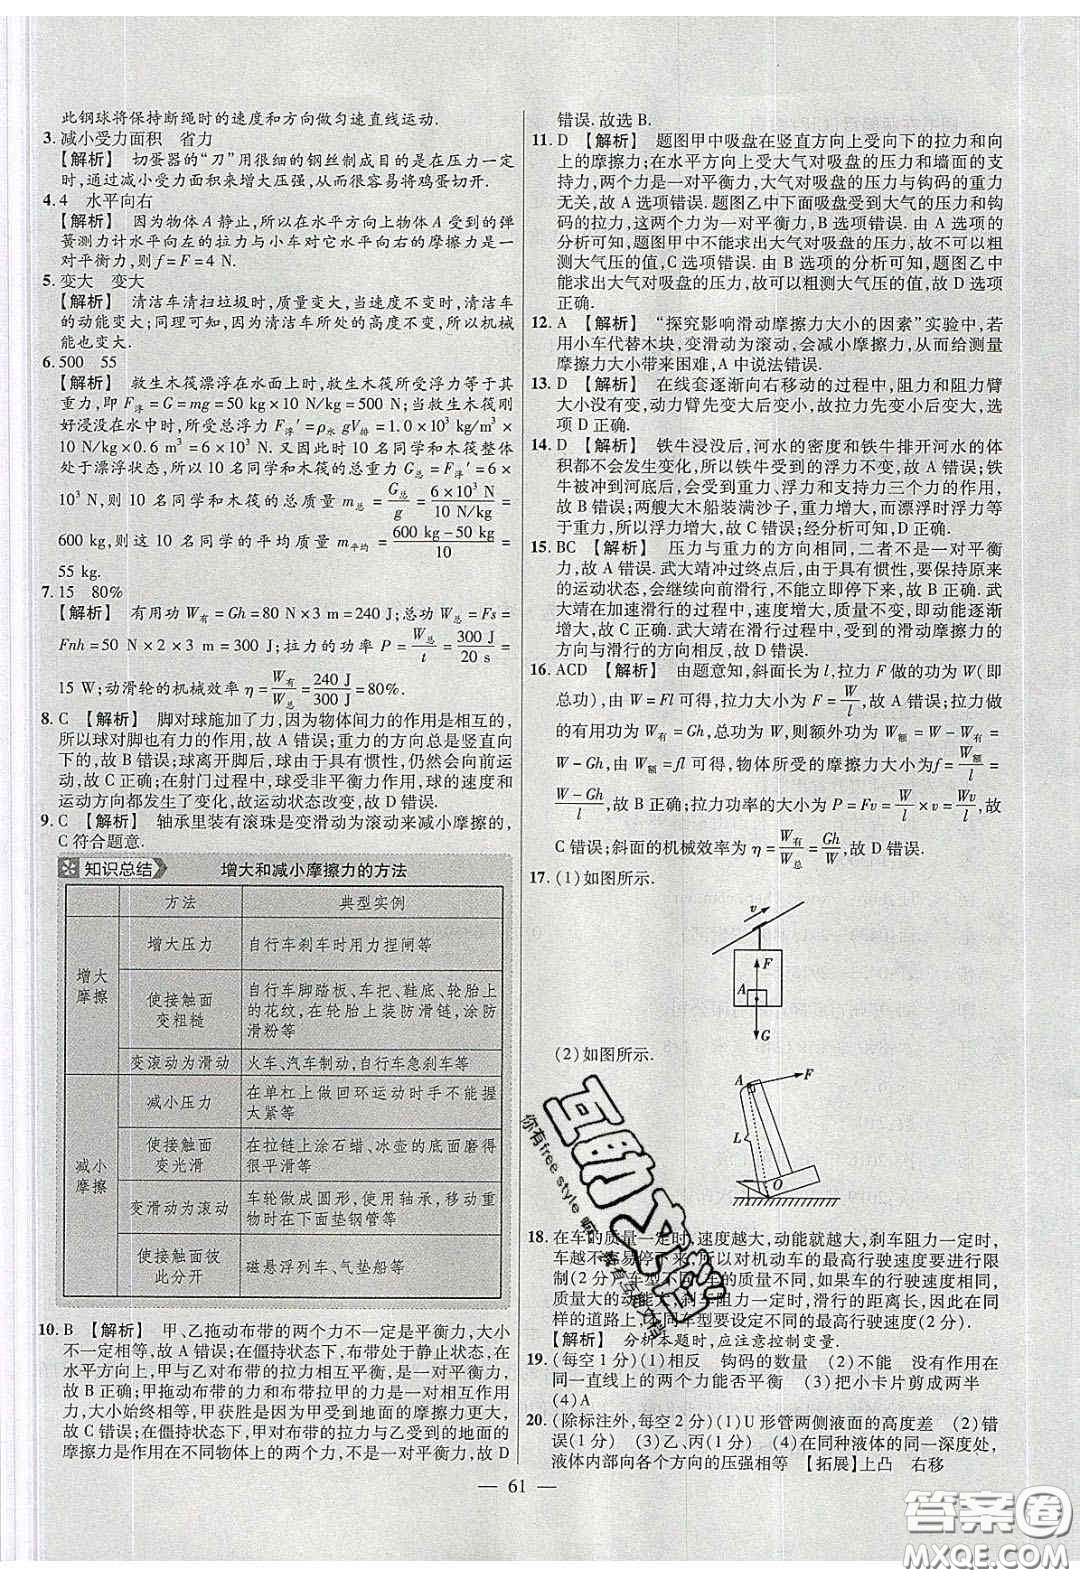 此钢球将保持断绳时的速度和方向做匀速直线运动.
3. 减小受力面积 省力
【解析】 切蛋器的“刀”用很细的钢丝制成目的是在压力一定
时,通过减小受力面积来增大压强,从而很容易将鸡蛋切开.
4. 4 水平向右
【解析】 因为物体 A 静止,所以在水平方向上物体 A 受到的弹
簧测力计水平向左的拉力与小车对它水平向右的摩擦力是一
对平衡力,则 f = F = 4 N.
5. 变大 变大
【解析】 清洁车清扫垃圾时,质量变大,当速度不变时,清洁车
的动能变大;同理可知,由于清洁车所处的高度不变,所以机械
能也变大.
6. 500 55
【解析】 救生木筏漂浮在水面上时,救生木筏所受浮力等于其
重力,即 F浮 = G = mg = 50 kg×10 N/kg = 500 N;当救生木筏刚
好浸没在水中时,所受总浮力 F浮′ = ρ水 gV排 = 1.0×10³ kg/m³×
10 N/kg×0.6 m³ = 6×10³ N. 又因此时 10 名同学和木筏整体
处于漂浮状态,所以 10 名同学和木筏的总重力 G总 = F浮′ = 6×
10³ N, 则 10 名同学和木筏的总质量 m总 = G总/g = 6×10³ N/10 N/kg =
600 kg,则这 10 名同学的平均质量 m平均 = 600 kg-50 kg/10 =
55 kg.
7. 15 80%
【解析】 有用功 W有 = Gh = 80 N×3 m = 240 J;总功 W总 = Fs =
Fnh = 50 N×2×3 m = 300 J;拉力的功率 P = W总/t = 300 J/20 s =
15 W;动滑轮的机械效率 η = W有/W总 = 240 J/300 J = 80%.
8. C 【解析】 脚对球施加了力,因为物体间力的作用是相互的,
所以球对脚也有力的作用,故 A 错误;重力的方向总是竖直向
下的,故 B 错误;球离开脚后,球由于具有惯性,仍然会向前运
动,故 C 正确;在射门过程中,球受非平衡力作用,球的速度和
运动方向都发生了变化,故运动状态改变,故 D 错误.
9. C 【解析】 轴承里装有滚珠是变滑动为滚动来减小摩擦的,
C 符合题意.
知识总结 增大和减小摩擦力的方法
方法 典型实例
增大摩擦
增大压力 自行车刹车时用力捏闸等
使接触面变粗糙 自行车脚踏板、车把、鞋底、轮胎上
的花纹,在轮胎上装防滑链,涂防
滑粉等
变滚动为滑动 火车、汽车制动,自行车急刹车等
减小摩擦
减小压力 在单杠上做回环运动时手不能握
太紧等
使接触面变光滑 在拉链上涂石蜡、冰壶的底部磨得
很平滑等
变滑动为滚动 车轮做成圆形,使用轴承,移动重
物时在下面垫钢管等
使接触面彼此分开 磁悬浮列车、气垫船等
10. B 【解析】 甲、乙拖动布带的两个力不一定是平衡力,大小
不一定相等;在僵持状态下,布带处于静止状态,布带在
水平方向上,甲与乙对布带的拉力相互平衡,一定相等,
故 B 正确;甲拖动布带的力和布带拉甲的力是一对相互作用
力,大小始终相等,甲获胜是因为甲受到地面的摩擦力大,
故 C 错误;在僵持状态下,甲对布带的拉力与乙受到的地面的
摩擦力是作用在不同物体上的两个力,不是一对平衡力,故 D
错误. 故选 B.
11. D 【解析】 题图甲中吸盘在竖直方向上受向下的拉力和向
上的摩擦力;在水平方向上受大气对吸盘的压力和墙面的支
持力,两个力是一对平衡力,大气对吸盘的压力与钩码的重力
无关,故 A 选项错误. 题图乙中下面吸盘受到大气的压力和钩
码的拉力,这两个力为一对平衡力,B 选项错误. 由 A 选项的
分析可知,题图甲中不能求出大气对吸盘的压力,故不可以粗
测大气压的值,C 选项错误. 由 B 选项的分析可知,题图乙中
能求出大气对吸盘的压力,故可以粗测大气压的值,故 D 选项
正确.
12. A 【解析】 “探究影响滑动摩擦力大小的因素”实验中,若
用小车代替木块,变滑动为滚动,会减小摩擦力,从而给测量
摩擦力大小带来困难,A 中说法错误.
13. D 【解析】 在线套逐渐向右移动的过程中,阻力和阻力臂
大小没有变,动力臂先变大后变小,故拉力先变小后变大,选
项 D 正确.
14. D 【解析】 铁牛浸没后,河水的密度和铁牛排开河水的体
积都不会发生变化,所以铁牛受到的浮力不变,故 A 错误;铁
牛被冲到河底后,会受到重力、浮力和支持力三个力的作用,
故 B 错误;两艘大木船装满沙子,重力增大,而漂浮时浮力等
于重力,所以浮力增大,故 C 错误;经分析可知,D 正确.
15. BC 【解析】 压力与重力的方向相同,二者不是一对平衡
力,故 A 错误. 武大靖冲过终点后,由于惯性,要保持原来
的运动状态,会继续向前滑行,不能立即停下来,故 B 正确. 武
大靖在加速滑行的过程中,速度增大,质量不变,即动能逐渐
增大,故 C 正确. 武大靖在滑行过程中,受到的滑动摩擦力的
方向与滑行的方向相反,故 D 错误.
16. ACD 【解析】 由题意知,斜面长为 l,拉力 F 做的功为 W(即
总功),由 W = Fl 可得,拉力大小为 F = W/l,故 A 正确;拉力做
的有用功为 W有 = Gh,总功为 W,则额外功为 W额 = W-W有 =
W-Gh,由 W额 = fl 可得,物体所受的摩擦力大小为 f = W额/l =
W-Gh/l,故 B 正确;拉力功率的大小为 P = Fv = W/l×v = Wv/l,故
C 错误;斜面的机械效率为 η = W有/W总 = Gh/W,故 D 正确.
17. (1)如图所示.
v
F
A
G
(2)如图所示.
A
F
L
O
18. 在车的质量一定时,速度越大,动能就越大,刹车阻力一定时,
车越不容易停下来,所以对机动车的最高行驶速度要进行限
制(2 分);车型不同,车的质量不同,如果车的行驶速度相同,
质量大的动能大,刹车阻力一定时,滑行的距离长,因此在同
样的道路上,不同车型要设定不同的最高行驶速度(2 分).
【解析】 分析本题时,应注意控制变量.
19. (每空 1 分)(1)相反 钩码的数量 (2)不能 没有作用在
同一直线上的两个力能否平衡 (3)把小卡片剪成两半
(4)A
20. (除标注外,每空 2 分)(1)U 形管两侧液面的高度差 (2)错
误(1 分) (3)乙、丙(1 分) (4)在同种液体的同一深度处,
液体内部向各个方向的压强相等 【拓展】上凸 右移
— 61 —
互助文档
你有free style
答案圈
MXQE.COM